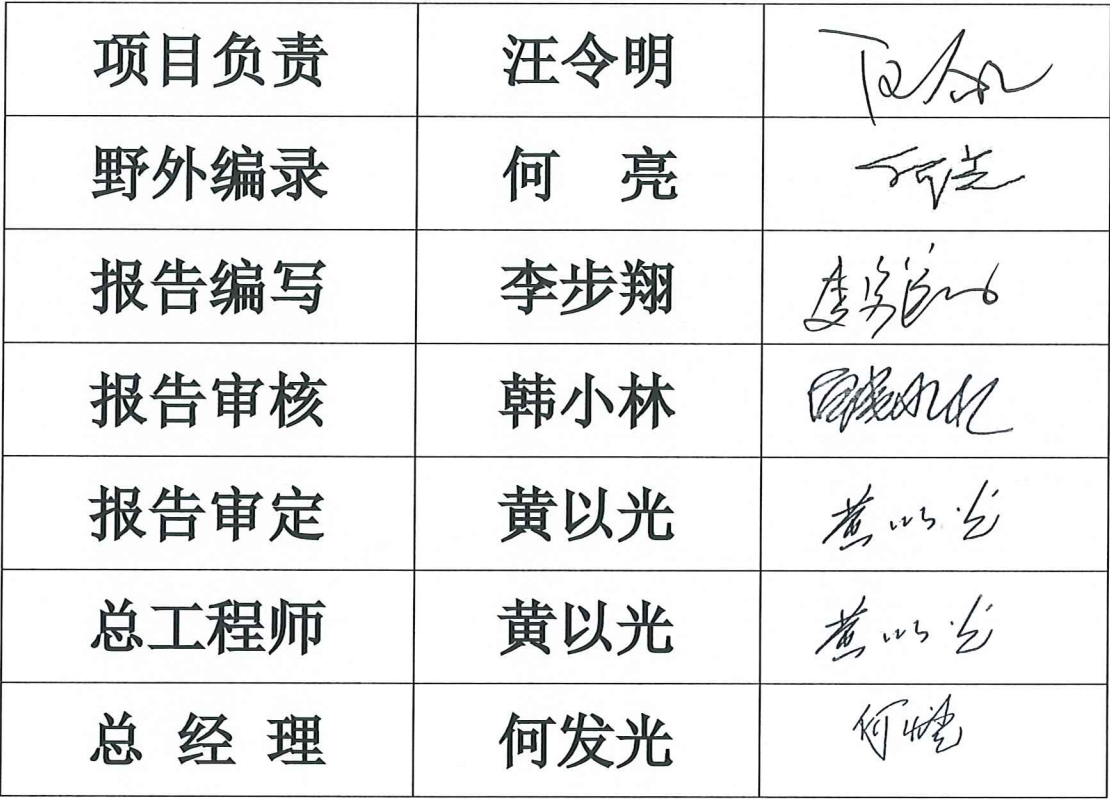 项目负责 汪令明
野外编录 何 亮 何亮
报告编写 李步翔
报告审核 韩小林
报告审定 黄以光 黄以光
总工程师 黄以光 黄以光
总 经 理 何发光